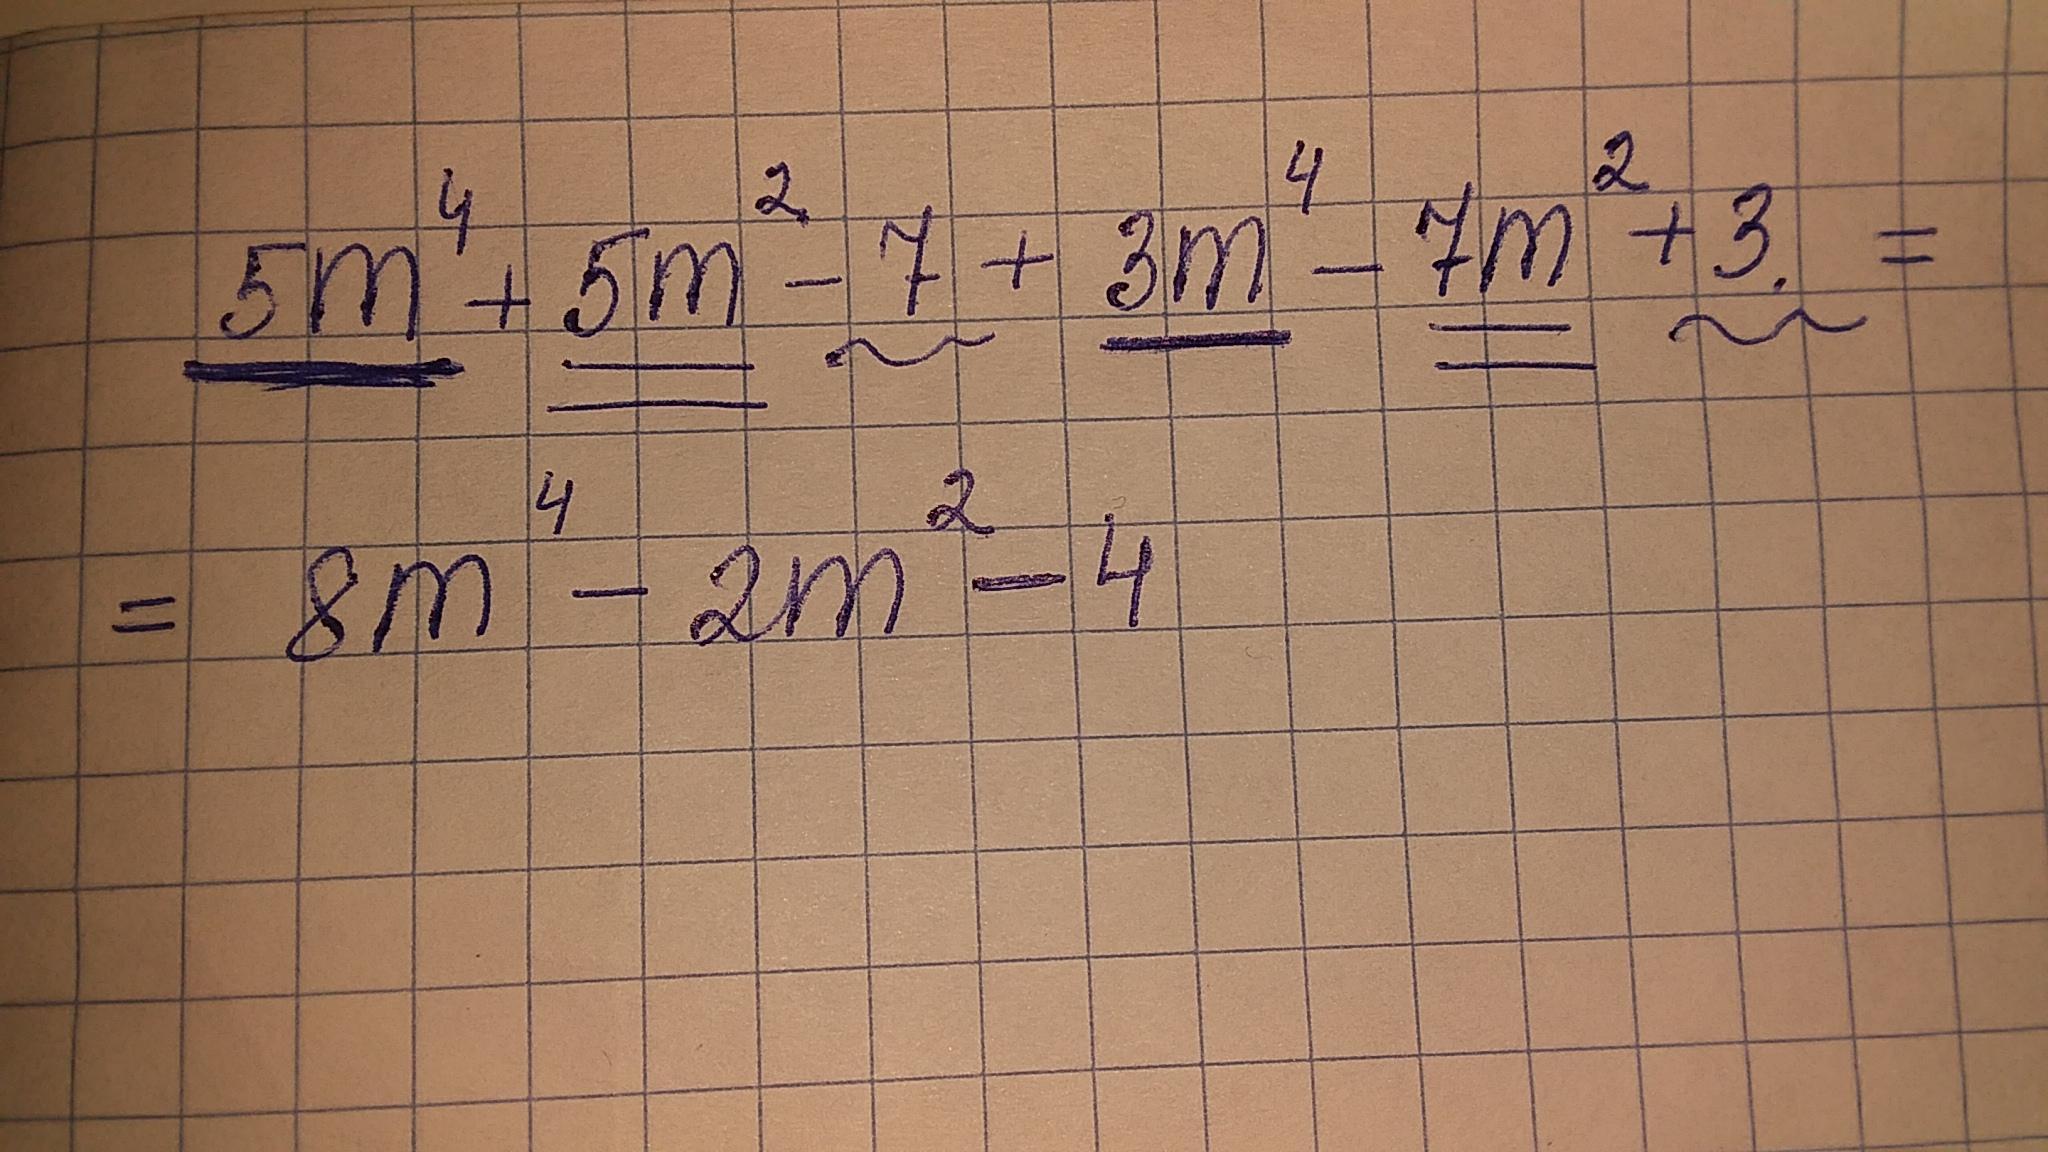 5m⁴ + 5m² - 7 + 3m⁴ - 7m² + 3. =
= 8m⁴ - 2m² - 4